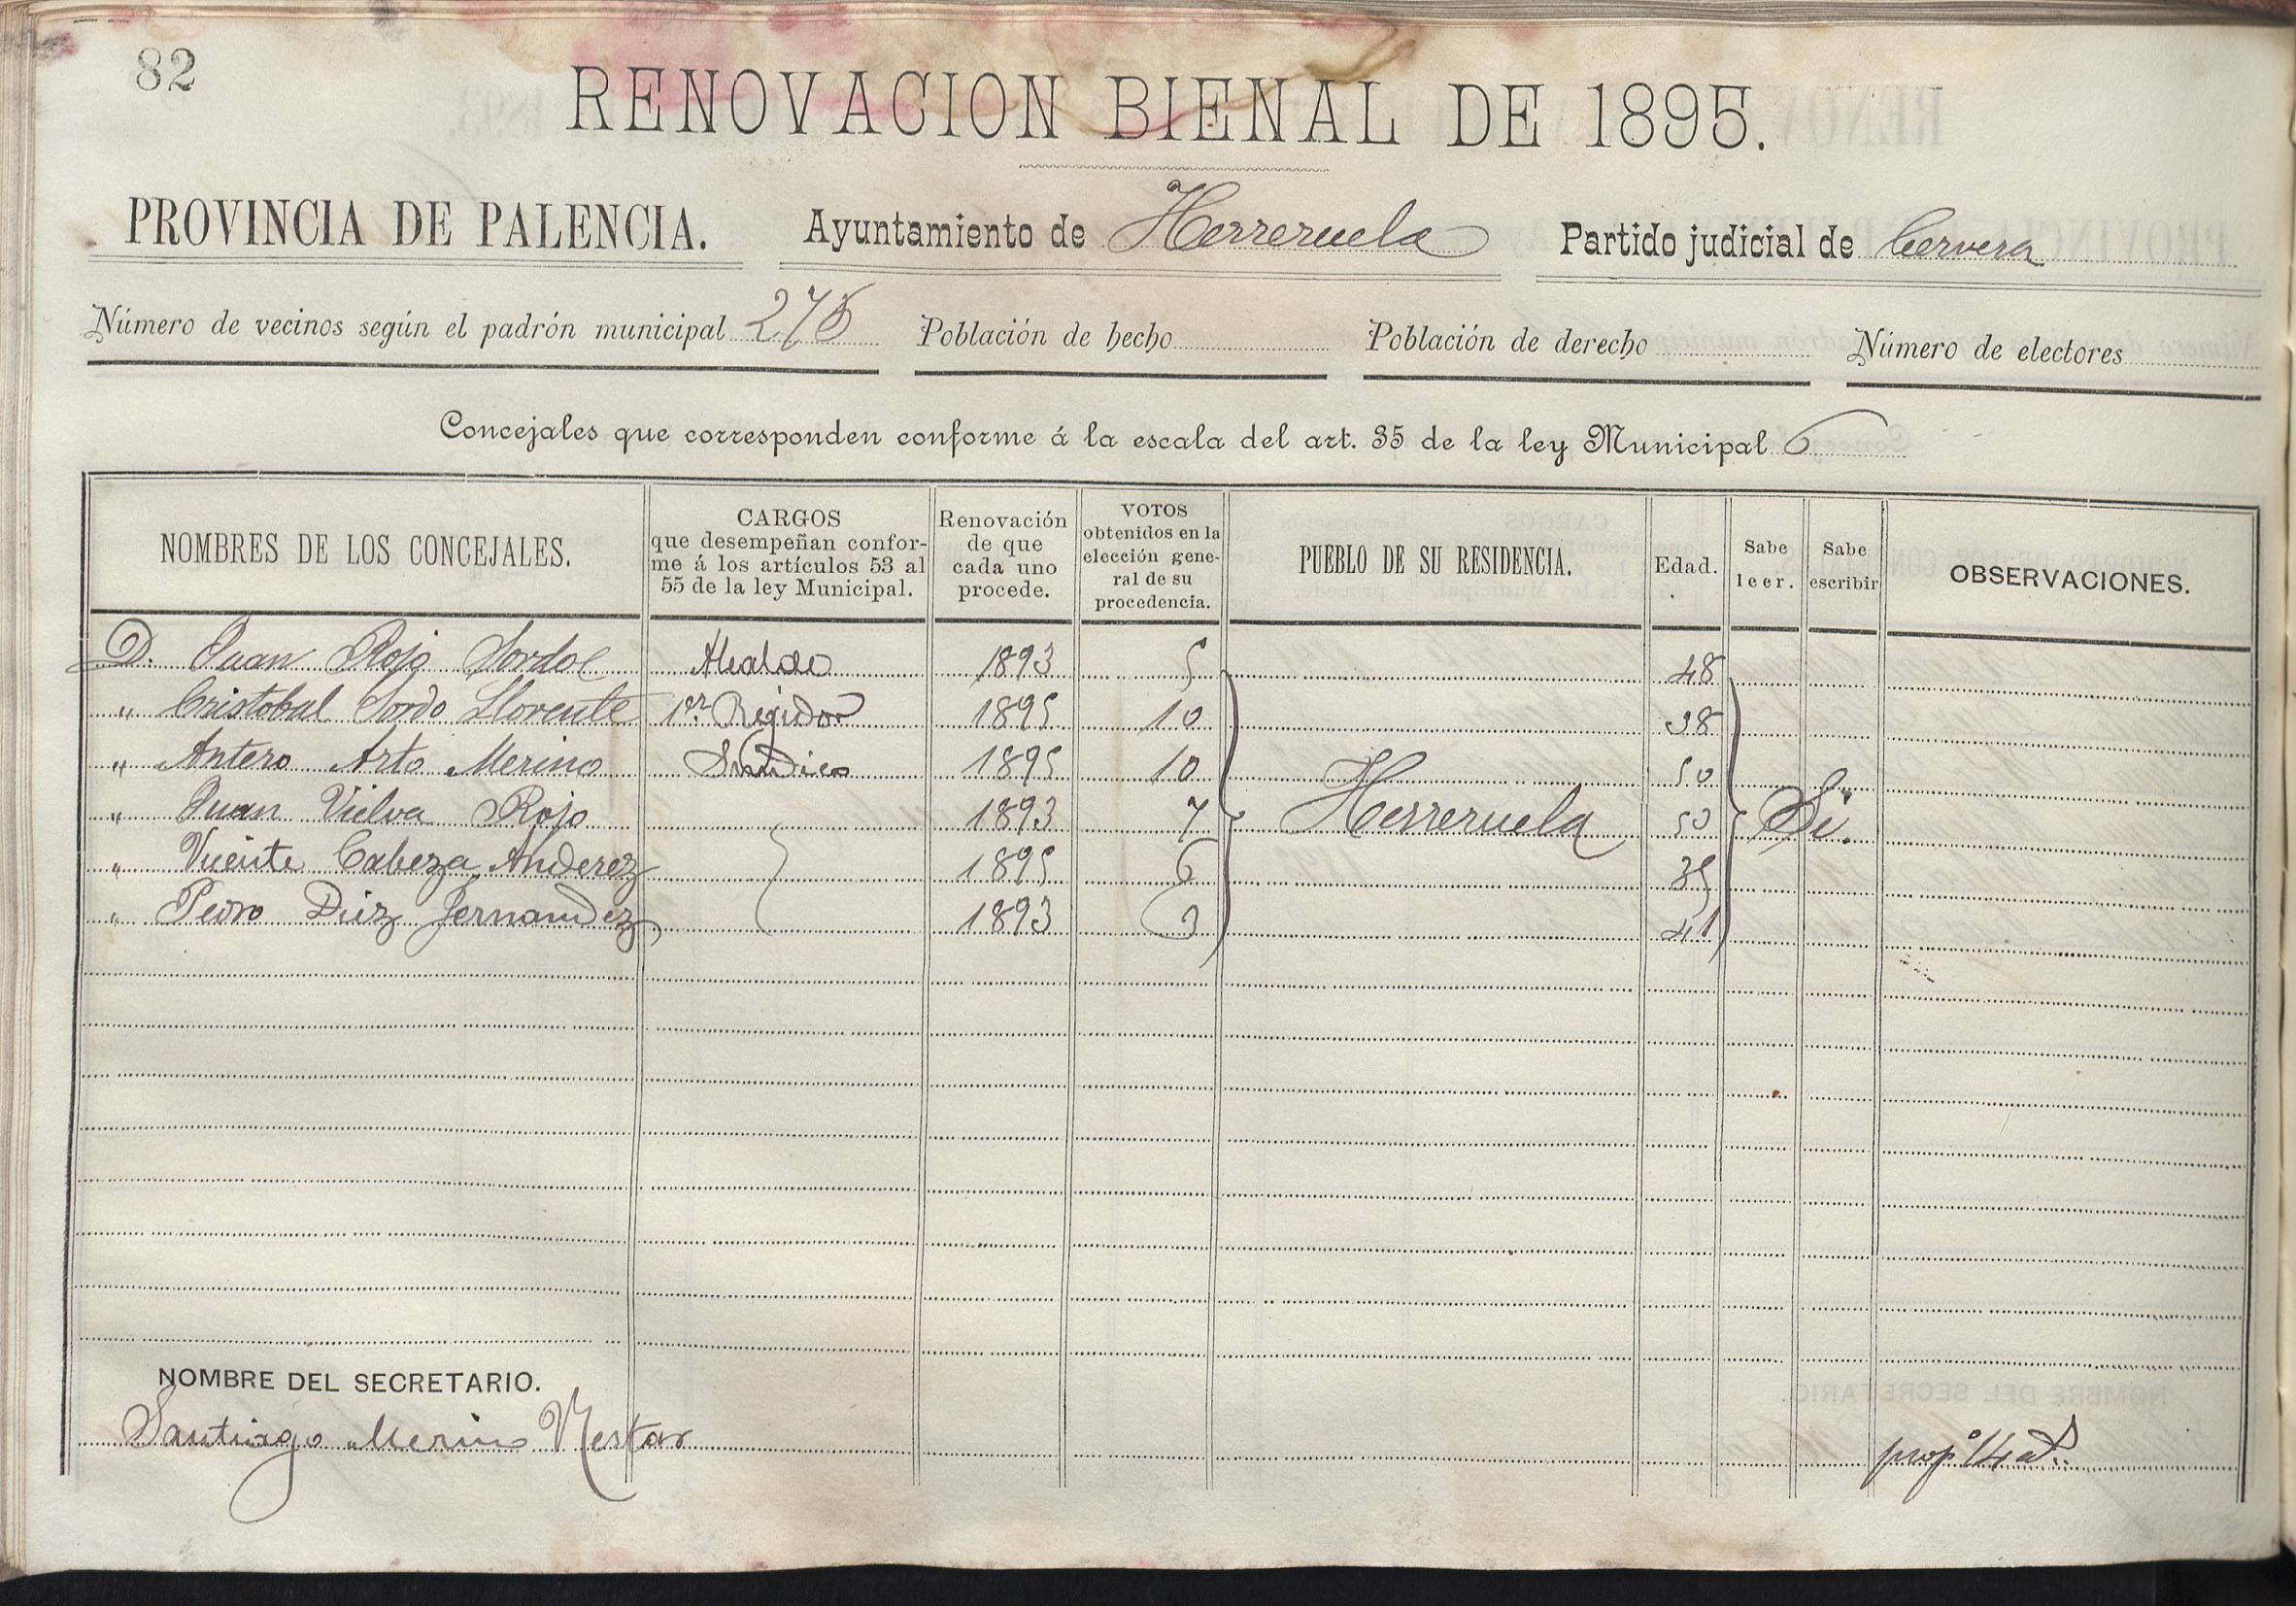 82
RENOVACION BIENAL DE 1895.
PROVINCIA DE PALENCIA. Ayuntamiento de Herreruela Partido judicial de Cervera
Número de vecinos según el padrón municipal 275 Población de hecho Población de derecho Número de electores
Concejales que corresponden conforme á la escala del art. 35 de la ley Municipal 6
NOMBRES DE LOS CONCEJALES. CARGOS que desempeñan conforme á los artículos 53 al 55 de la ley Municipal. Renovación de que cada uno procede. VOTOS obtenidos en la elección general de su procedencia. PUEBLO DE SU RESIDENCIA. Edad. Sabe leer. Sabe escribir OBSERVACIONES.
D. Juan Rojo Sordo Alcalde 1893 5 48
" Cristobal Sordo Llorente 1er Regidor 1895 10 38
" Antero Arto Merino Sindico 1895 10 50
" Juan Vielva Rojo 1893 7 Herreruela 50 Si.
" Vicente Cabeza Anderez 1895 6 35
" Pedro Diez Fernandez 1893 3 41
NOMBRE DEL SECRETARIO.
Santiago Merino Nestar